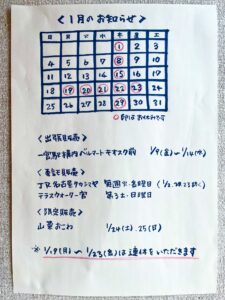 ＜1月のお知らせ＞
日 月 火 水 木 金 土
1 2 3
4 5 6 7 8 9 10
11 12 13 14 15 16 17
18 19 20 21 22 23 24
25 26 27 28 29 30 31
○印はお休みです
＜出張販売＞
一宮駅構内 キオスク前 1/9(金)～1/14(水)
＜委託販売＞
JR名古屋タカシマヤ 毎週火・金曜日
テラスウォーク一宮 第3土・日曜日
＜限定販売＞
山菜おこわ 1/24(土).25(日)
※ 1/19(月)～1/23(金)は連休をいただきます